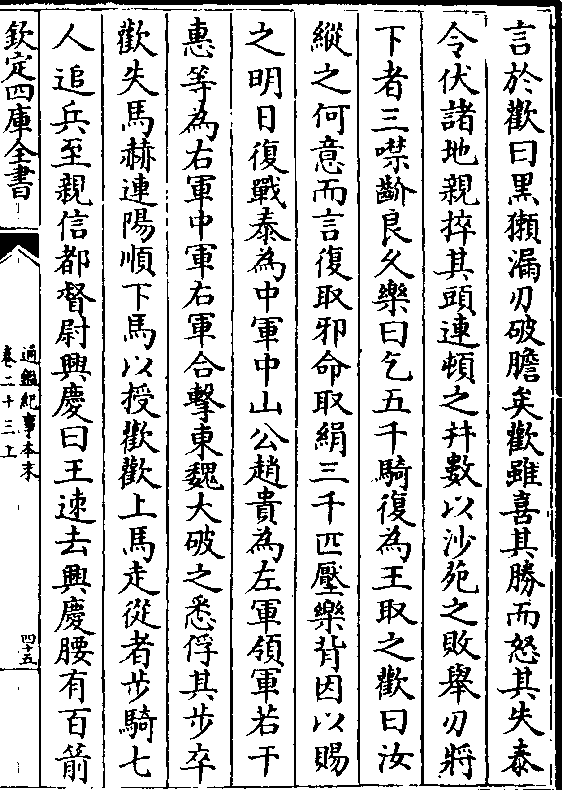 言於歡曰黑獺漏刃破膽矣歡雖喜其勝而怒其失泰
令伏諸地親捽其頭連頓之幷數以沙苑之敗舉刃將
下者三噤齡良久樂曰乞五千騎復為王取之歡曰汝
縱之何意而言復取邪命取絹三千匹壓樂背因以賜
之明日復戰泰為中軍中山公趙貴為左軍領軍若干
惠等為右軍中軍右軍合擊東魏大破之悉俘其步卒
歡失馬赫連陽順下馬以授歡歡上馬走從者步騎七
人追兵至親信都督尉興慶曰王速去興慶腰有百箭
欽定四庫全書
通鑑紀事本末
卷二十三上
四十五